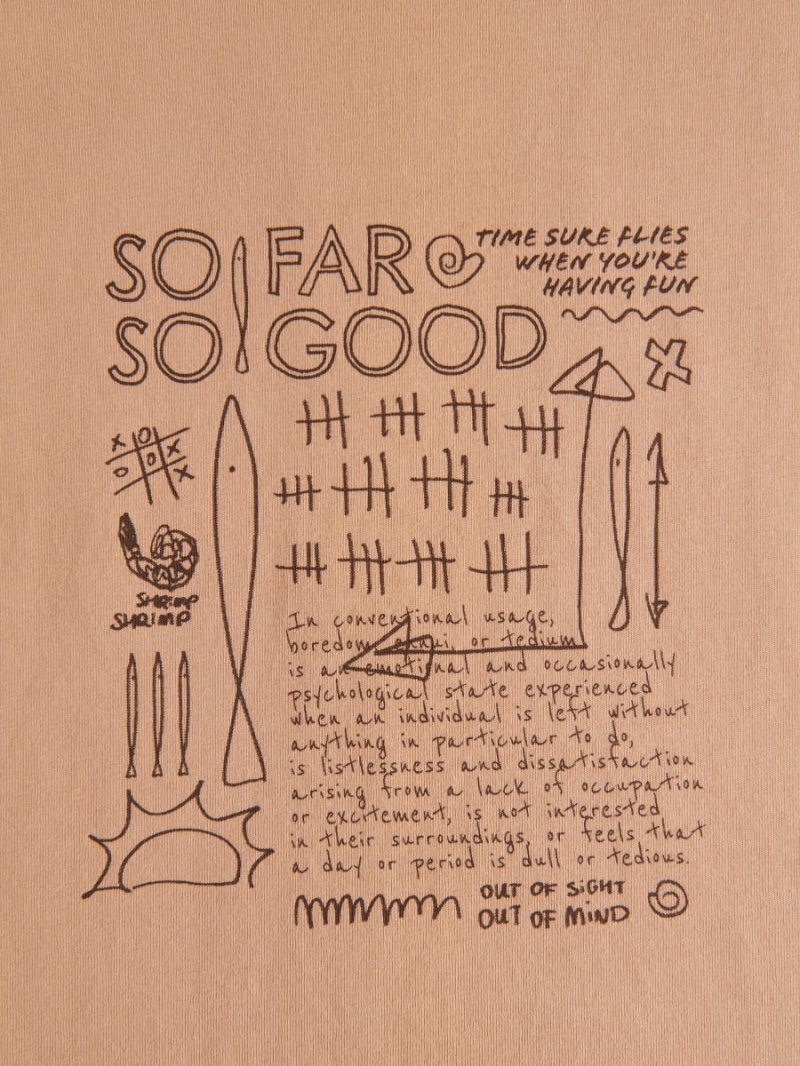 SO FAR
SO GOOD
TIME SURE FLIES
WHEN YOU'RE
HAVING FUN
X O X
O O X
SHRIMP
SHRIMP
In conventional usage,
boredom, ennui, or tedium
is an emotional and occasionally
psychological state experienced
when an individual is left without
anything in particular to do,
is listlessness and dissatisfaction
arising from a lack of occupation
or excitement, is not interested
in their surroundings, or feels that
a day or period is dull or tedious.
OUT OF SiGHT
OUT OF MiND